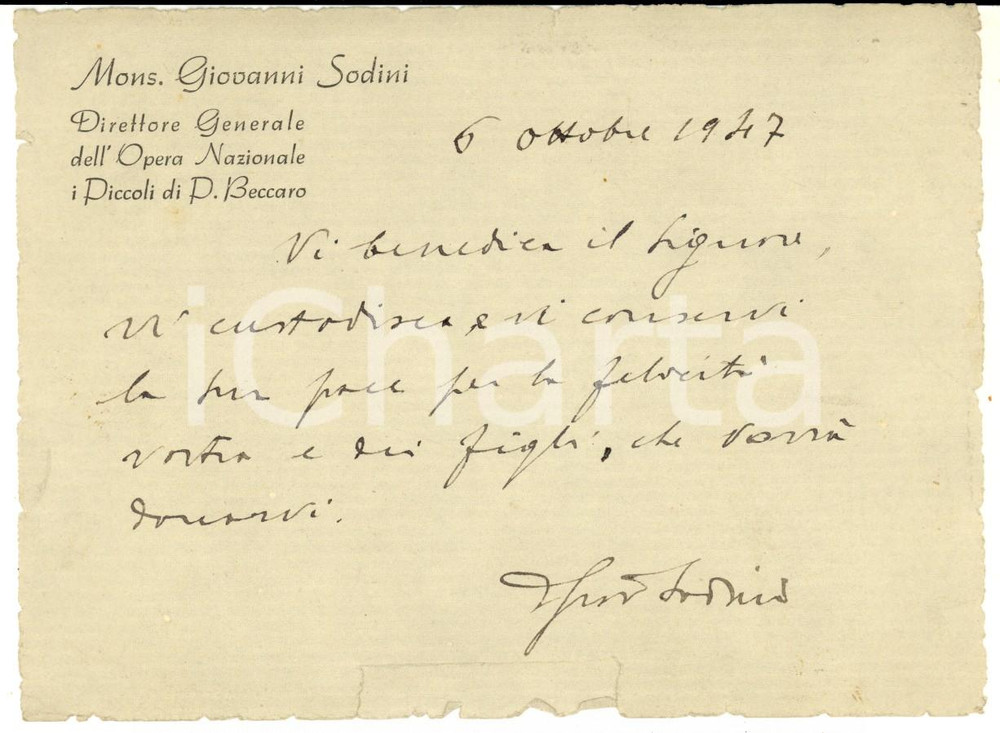 Mons. Giovanni Sodini
Direttore Generale
dell' Opera Nazionale
i Piccoli di P. Beccaro
6 ottobre 1947
Vi benedica il Signore,
Vi custodisca e vi conservi
la sua pace per la felicità
vostra e dei figli, che vorrà
donarvi.
Sodini
iCharta